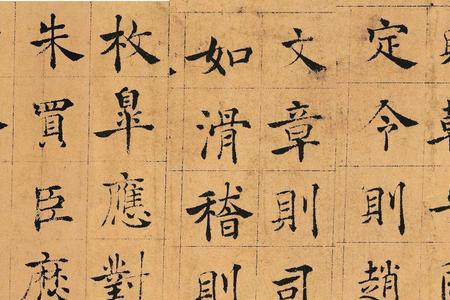 定令則趙
文章則司
如滑稽則
枚皐應對
朱買臣